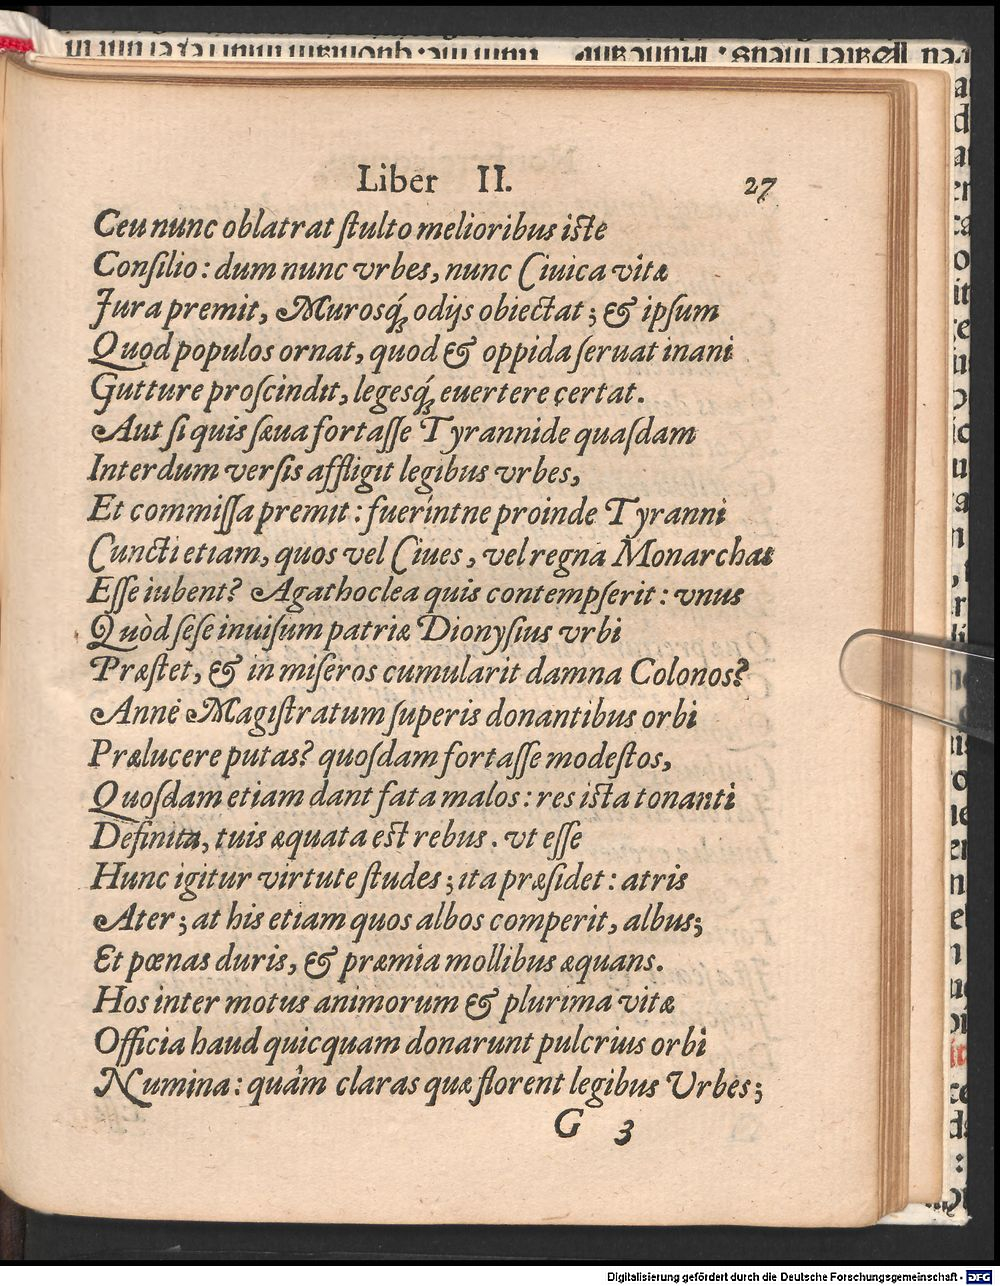 Liber II. 27
Ceu nunc oblatrat ſtulto melioribus iste
Conſilio: dum nunc vrbes, nunc Ciuica vitæ
Jura premit, Murosq́ꝫ odijs obiectat; & ipſum
Quod populos ornat, quod & oppida ſeruat inani
Gutture proſcindit, legesq́ꝫ euertere certat.
Aut ſi quis ſæua fortaſſe Tyrannide quaſdam
Interdum verſis affligit legibus vrbes,
Et commiſſa premit: fuerintne proinde Tyranni
Cuncti etiam, quos vel Ciues, vel regna Monarchas
Eſſe iubent? Agathoclea quis contempſerit: vnus
Quòd ſeſe inuiſum patriæ Dionyſius vrbi
Præſtet, & in miſeros cumularit damna Colonos?
Anne Magiſtratum ſuperis donantibus orbi
Prælucere putas? quoſdam fortaſſe modeſtos,
Quoſdam etiam dant fata malos: res ista tonanti
Definita, tuis æquata est rebus. vt eſſe
Hunc igitur virtute ſtudes; ita præſidet: atris
Ater; at his etiam quos albos comperit, albus;
Et pœnas duris, & præmia mollibus æquans.
Hos inter motus animorum & plurima vitæ
Officia haud quicquam donarunt pulcrius orbi
Numina: quâm claras quæ florent legibus Vrbes;
G 3
Digitalisierung gefördert durch die Deutsche Forschungsgemeinschaft - DFG